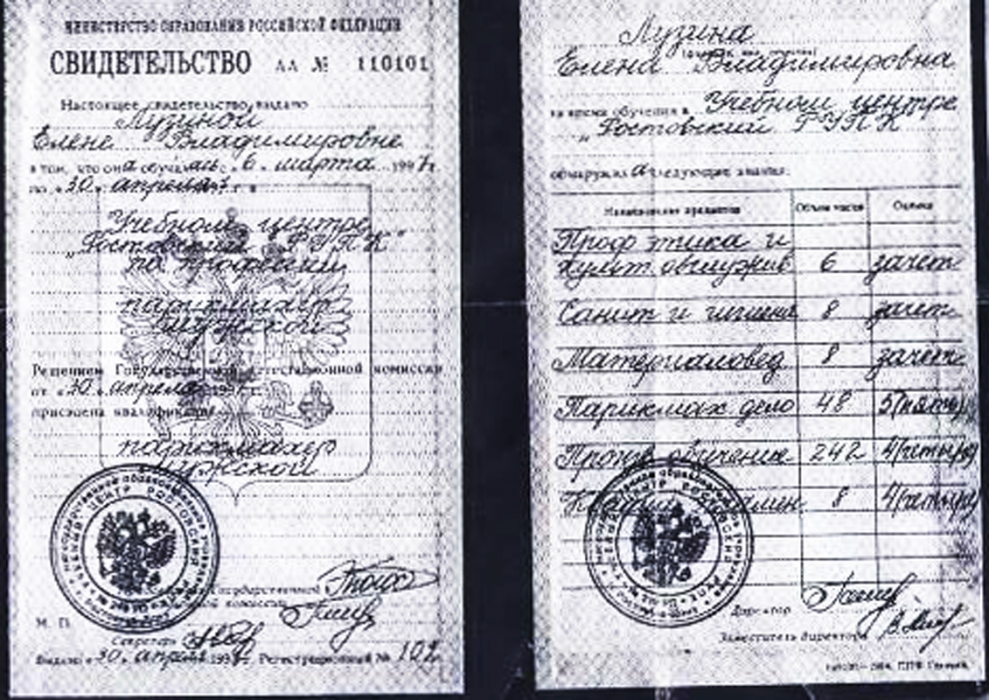 МИНИСТЕРСТВО ОБРАЗОВАНИЯ РОССИЙСКОЙ ФЕДЕРАЦИИ
СВИДЕТЕЛЬСТВО АА № 110101
Настоящее свидетельство выдано
Лузиной
Елене Владимировне
в том, что она обучалась с « 6 » марта 1997 г.
по « 30 » апреля 1997 г. в
Учебном центре
„Ростовский РУПК"
по профессии
парикмахер
мужской
Решением Государственной аттестационной комиссии
от « 30 » апреля 1997 г.
присвоена квалификация
парикмахер
мужской
Государственной
комиссии
М. П.
Секретарь
Выдано « 30 » апреля 1997 г. Регистрационный № 102
Лузина
(фамилия, имя, отчество)
Елена Владимировна
за время обучения в Учебном центре
„Ростовский РУПК"
обнаружила следующие знания:
Наименование предметов Объем часов Оценка
Проф этика и
культ обслужив 6 зачет
Санит и гигиена 8 зачет
Материаловед 8 зачет
Парикмах дело 48 5(пять)
Произв обучение 242 4(четыре)
8 4(четыре)
Директор
Заместитель директора